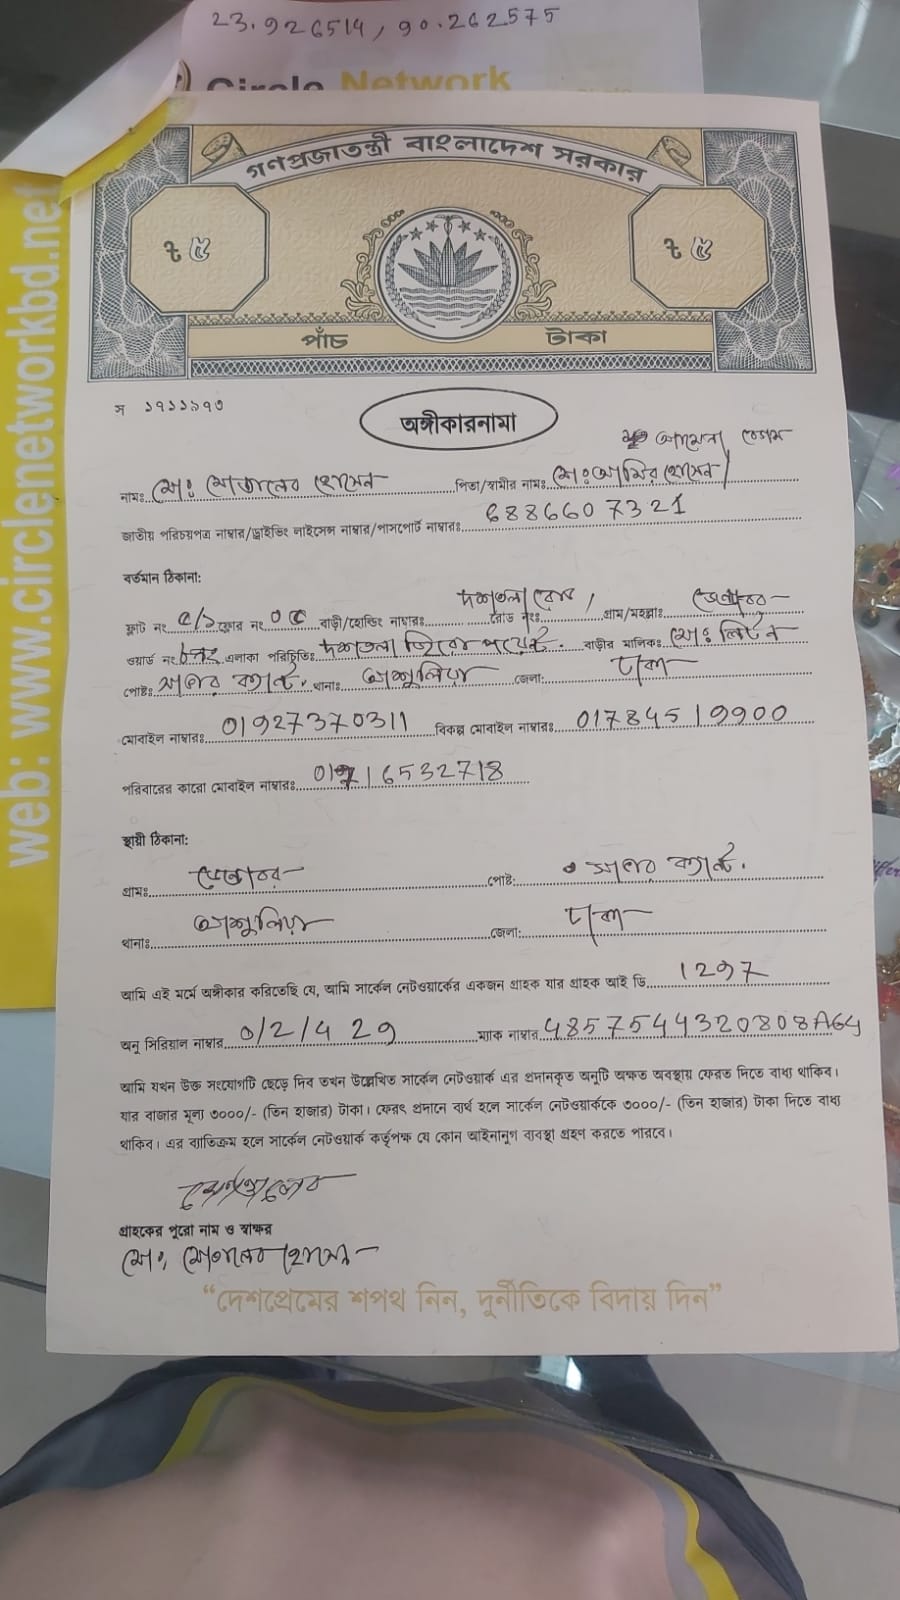 23.926514, 90.262575
Circle Network
web: www.circlenetworkbd.net
গণপ্রজাতন্ত্রী বাংলাদেশ সরকার
৳ ৫ ৳ ৫
পাঁচ টাকা
স ১৭১১৯৭৩
অঙ্গীকারনামা
আমেনা বেগম
নামঃ মোঃ মোতালেব হোসেন পিতা/স্বামীর নামঃ মোঃ আমির হোসেন
জাতীয় পরিচয়পত্র নাম্বার/ড্রাইভিং লাইসেন্স নাম্বার/পাসপোর্ট নাম্বারঃ 6886607321
বর্তমান ঠিকানা:
ফ্লাট নং ৫/১ ফ্লোর নং ০৫ বাড়ী/হোল্ডিং নাম্বারঃ দশতলা রোড নংঃ গ্রাম/মহল্লাঃ
ওয়ার্ড নংঃ ৮নং এলাকা পরিচিতিঃ দশতলা জিরো পয়েন্ট. বাড়ীর মালিকঃ মোঃ লিটন
পোষ্টঃ সাভার ক্যান্ট. থানাঃ আশুলিয়া জেলা: ঢাকা
মোবাইল নাম্বারঃ 01927370311 বিকল্প মোবাইল নাম্বারঃ 01784519900
পরিবারের কারো মোবাইল নাম্বারঃ 01716532718
স্থায়ী ঠিকানা:
গ্রামঃ পোষ্ট: সাভার ক্যান্ট.
থানাঃ আশুলিয়া জেলা: ঢাকা
আমি এই মর্মে অঙ্গীকার করিতেছি যে, আমি সার্কেল নেটওয়ার্কের একজন গ্রাহক যার গ্রাহক আই ডি 1297
অনু সিরিয়াল নাম্বার 0/2/4 29 ম্যাক নাম্বার 4857544320808A64
আমি যখন উক্ত সংযোগটি ছেড়ে দিব তখন উল্লেখিত সার্কেল নেটওয়ার্ক এর প্রদানকৃত অনুটি অক্ষত অবস্থায় ফেরত দিতে বাধ্য থাকিব।
যার বাজার মূল্য ৩০০০/- (তিন হাজার) টাকা। ফেরৎ প্রদানে ব্যর্থ হলে সার্কেল নেটওয়ার্ককে ৩০০০/- (তিন হাজার) টাকা দিতে বাধ্য
থাকিব। এর ব্যতিক্রম হলে সার্কেল নেটওয়ার্ক কর্তৃপক্ষ যে কোন আইনানুগ ব্যবস্থা গ্রহণ করতে পারবে।
মোতালেব
গ্রাহকের পুরো নাম ও স্বাক্ষর
মোঃ মোতালেব হোসেন
“দেশপ্রেমের শপথ নিন, দুর্নীতিকে বিদায় দিন”